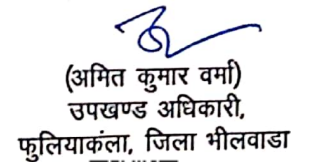 (अमित कुमार वर्मा)
उपखण्ड अधिकारी,
फुलियाकंला, जिला भीलवाडा